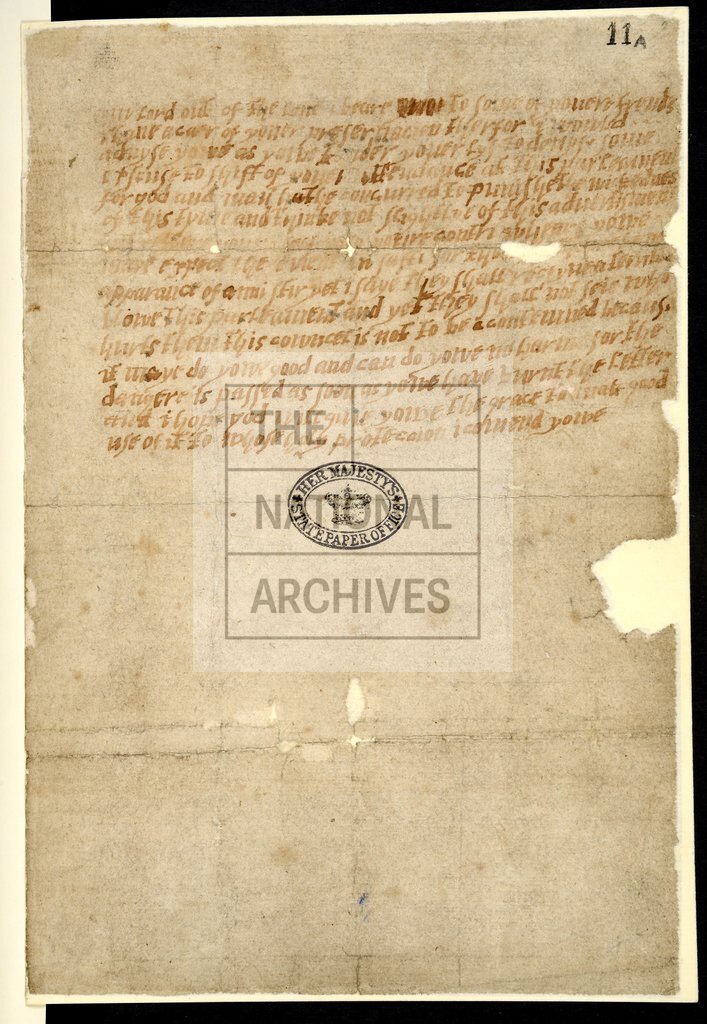 11A
lord out of the love i beare to some of youere frends
i have a caer of youer preservacion therfor i would
advyse yowe as yowe tender youer lyf to devyse some
exscuse to shift of youer attendance at this parleament
for god and man hathe concurred to punishe the wickednes
of this tyme and thinke not slightlye of this advertisment
youre contri wheare yowe
maye expect the event in safti for
apparance of anni stir yet i saye they shall receyve a terrible
blowe this parleament and yet they shall not seie who
hurts them this cowncel is not to be contemned because
it maye do yowe good and can do yowe no harme for the
dangere is passed as soon as yowe have burnt the letter
and i hope god will give yowe the grace to mak good
use of it to whose holy proteccion i comend yowe
HER MAJESTY'S
STATE PAPER OFFICE
THE
NATIONAL
ARCHIVES